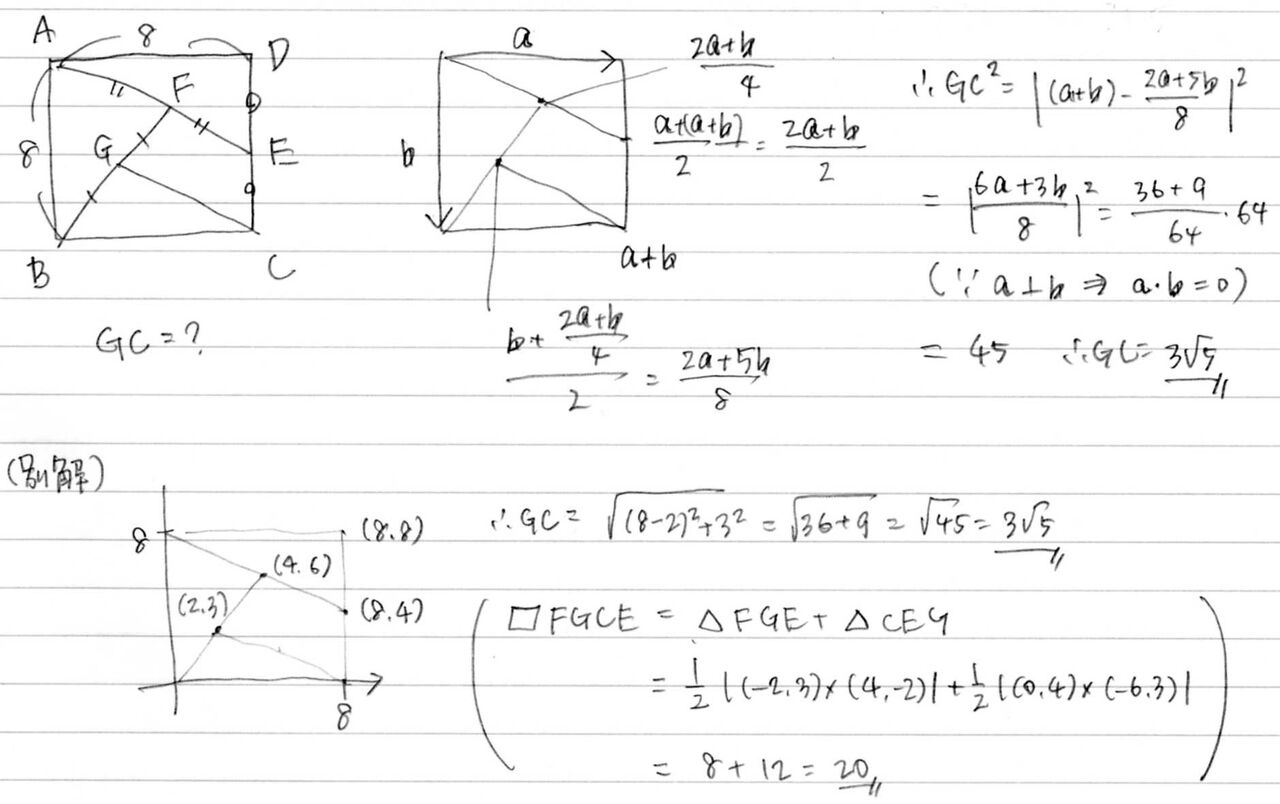 A 8 D
F
8 G E
B C
GC=?
a
b
2a+b/4
a+(a+b)/2 = 2a+b/2
a+b
b+ 2a+b/4 /2 = 2a+5b/8
∴GC²=|(a+b)-2a+5b/8|²
=|6a+3b/8|²=36+9/64・64
(∵a⊥b⇒a・b=0)
= 45 ∴GC=3√5
(別解)
8 (8.8)
(4.6)
(2.3) (8.4)
8
∴GC=√(8-2)²+3²=√36+9=√45=3√5
□FGCE = △FGE+△CEG
=1/2|(-2.3)×(4,-2)|+1/2|(0,4)×(-6.3)|
= 8+12=20